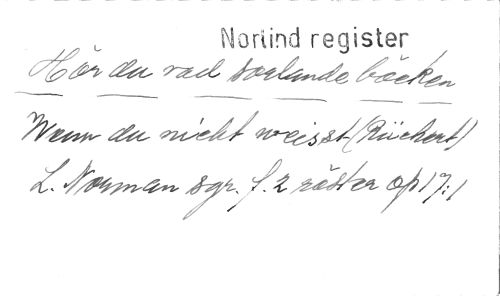 Norlind register
Hör du vad sorlande bäcken
Wenn du nicht weisst (Rückert)
L. Norman sgr. f. 2 röster op 17:1